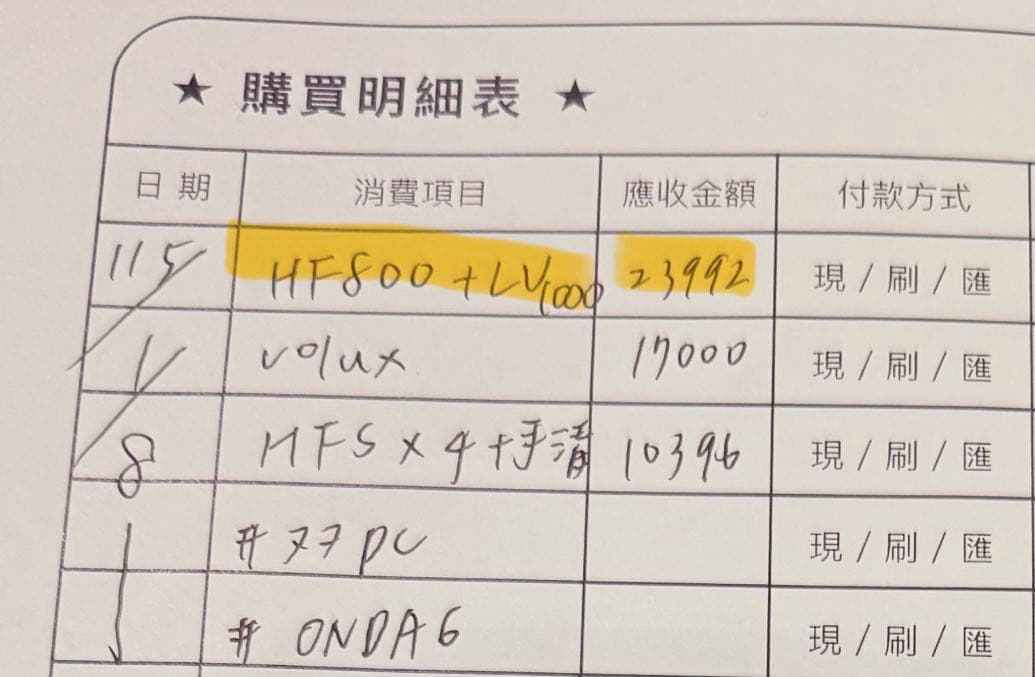 ★ 購買明細表 ★
日期 消費項目 應收金額 付款方式
115/ HF800+LV1000 23992 現/刷/匯
1/ volux 17000 現/刷/匯
8 HFS×4+手清 10396 現/刷/匯
#ププpc 現/刷/匯
# ONDA6 現/刷/匯